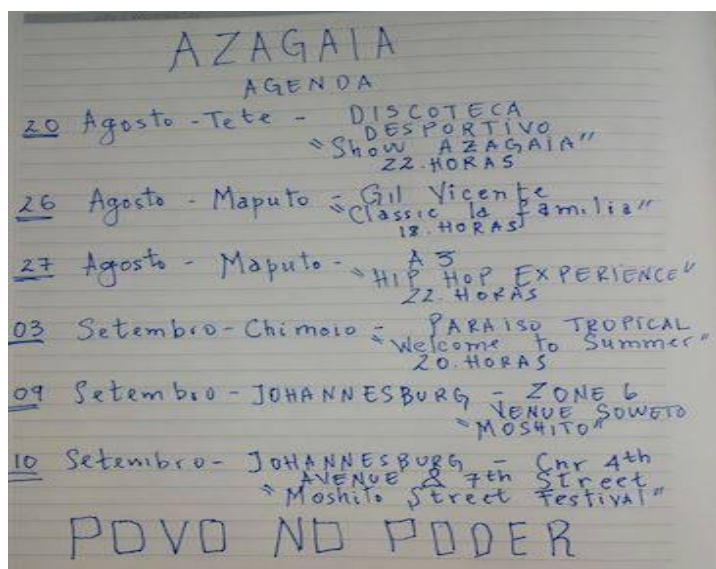 AZAGAIA
AGENDA
20 Agosto - Tete - DISCOTECA
DESPORTIVO
"Show AZAGAIA"
22.HORAS
26 Agosto - Maputo - Gil Vicente
"Classic la familia"
18.HORAS
27 Agosto - Maputo - A3
"HIP HOP EXPERIENCE"
22.HORAS
03 Setembro - Chimoio - PARAISO TROPICAL
"Welcome to Summer"
20.HORAS
09 Setembro - JOHANNESBURG - ZONE 6
VENUE SOWETO
"MOSHITO"
10 Setembro - JOHANNESBURG - Cnr 4th
AVENUE & 7th Street
"Moshito Street Festival"
POVO NO PODER